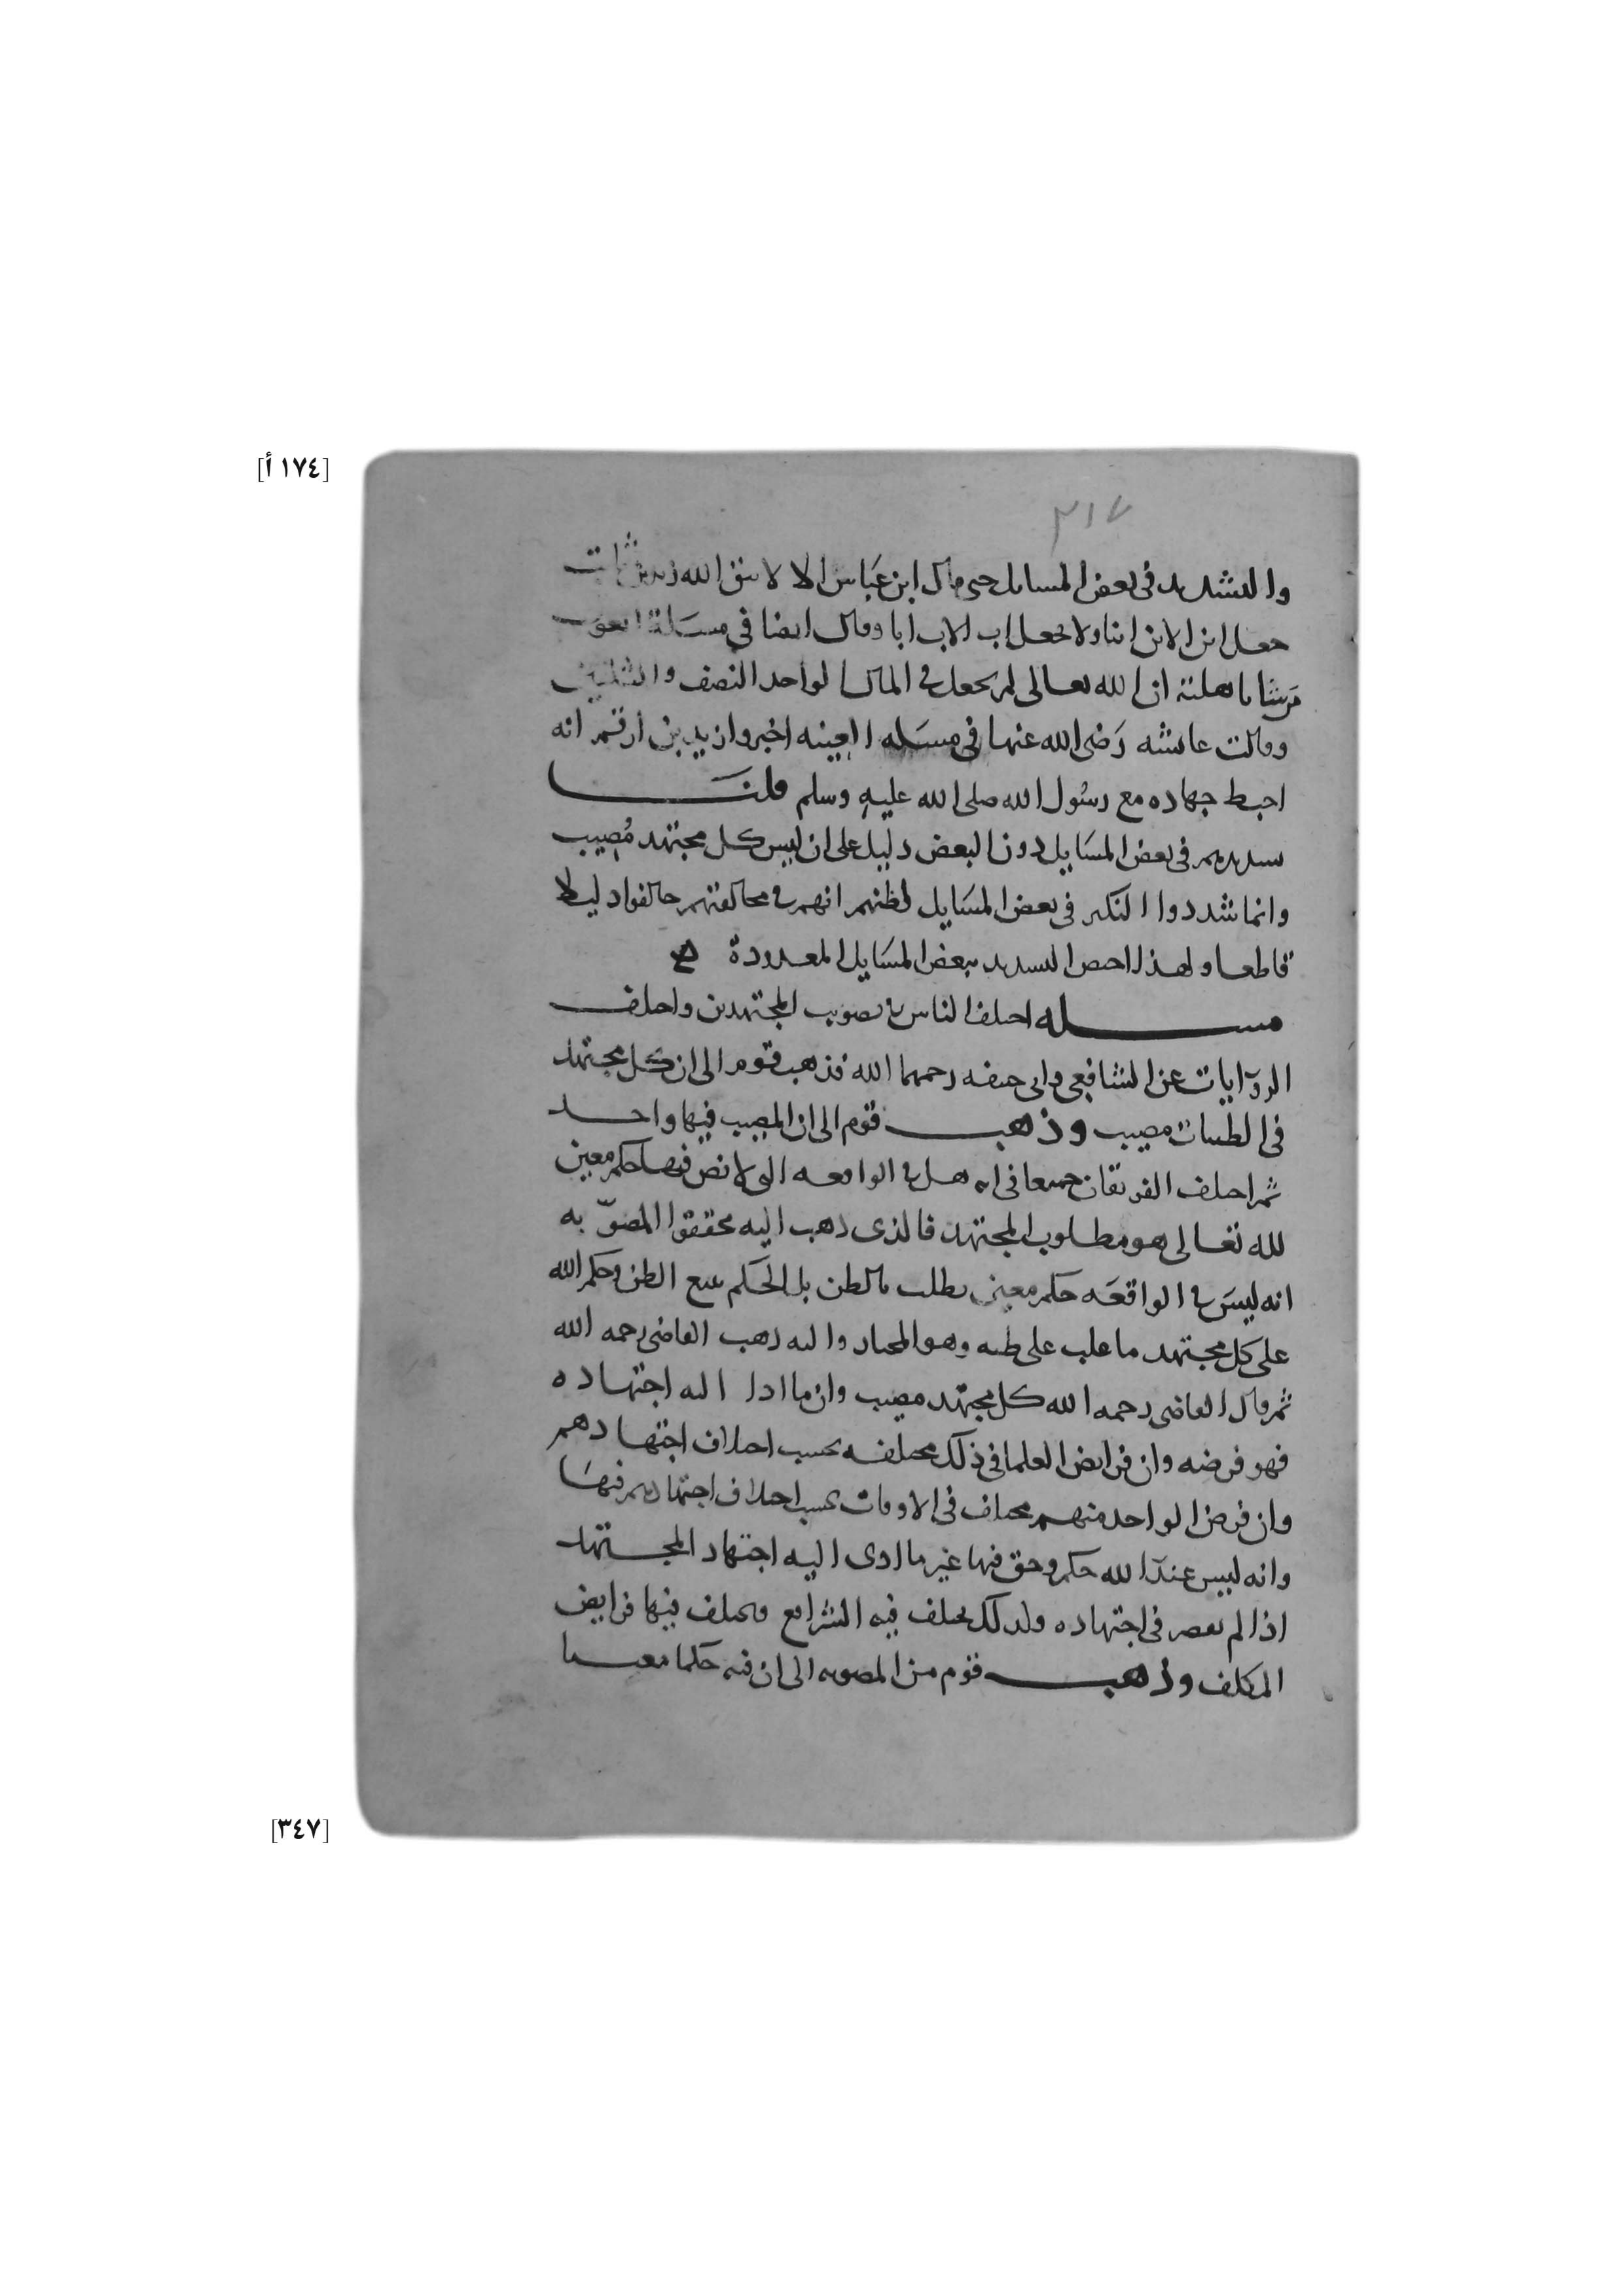 [١٧٤ أ]
٣١٧
والتشديد في بعض المسايل حتى قال ابن عباس الا لا يتق الله زيد بن ثابت
جعل ابن الابن ابنا ولا يجعل اب الاب ابا وقال ايضا في مسئلة العول
من شا باهلته ان الله تعالى لم يجعل في المال الواحد النصف والثلثين
وقالت عايشه رَضي الله عنها في مسَله العينه اخبروا زيد بن أرقم انه
احبط جهاده مع رسُول الله صلى الله عليه وسلم قلنَا
تشديدهم في بعض المسَايل دون البعض دليل على ان ليس كل مجتهد مُصِيب
وانما شددوا النكير في بعض المسَايل لظنهم انهم في مخالفتهم خالفوا دليلا
قاطعا ولهذا اختص التشديد ببعض المسَايل المعدودة
مسله اختلف الناس في تصويب المجتهدين واختلف
الروايات عن الشافعي وابي حنيفه رحمهما الله فذهب قوم الى ان كل مجتهد
في الظنيات مصيب وذهب قوم الى ان المصيب فيها واحد
ثم اختلف الفريقان جميعا في انه هل في الواقعه التي لا نص فيها حكم معين
لله تعالى هو مطلوب المجتهد فالذي ذهب اليه محققوا المصوّبه
انه ليسَ في الواقعَه حكم معين يطلب بالظن بل الحَكم يتبع الظن وحكم الله
على كل مجتهد ما غلب على ظنه وهو المختار واليه ذهب القاضي رحمه الله
ثم قال القاضي رحمه الله كل مجتهد مصيب وان ما ادا اليه اجتهاده
فهو فرضه وان فرايض العلما في ذلك مختلفه بحسب اختلاف اجتهادهم
وان فرض الواحد منهم مختلف في الاوقات بحسب اختلاف اجتهادهم فيهَا
وانه ليس عند الله حكم وحق فيها غير ما ادى اليه اجتهاد المجتهد
اذا لم يقصر في اجتهاده ولذلك يختلف فيه الشرايع ويختلف فيها فرايض
المكلف وذهب قوم من المصوبه الى ان فيه حكما معينا
[٣٤٧]